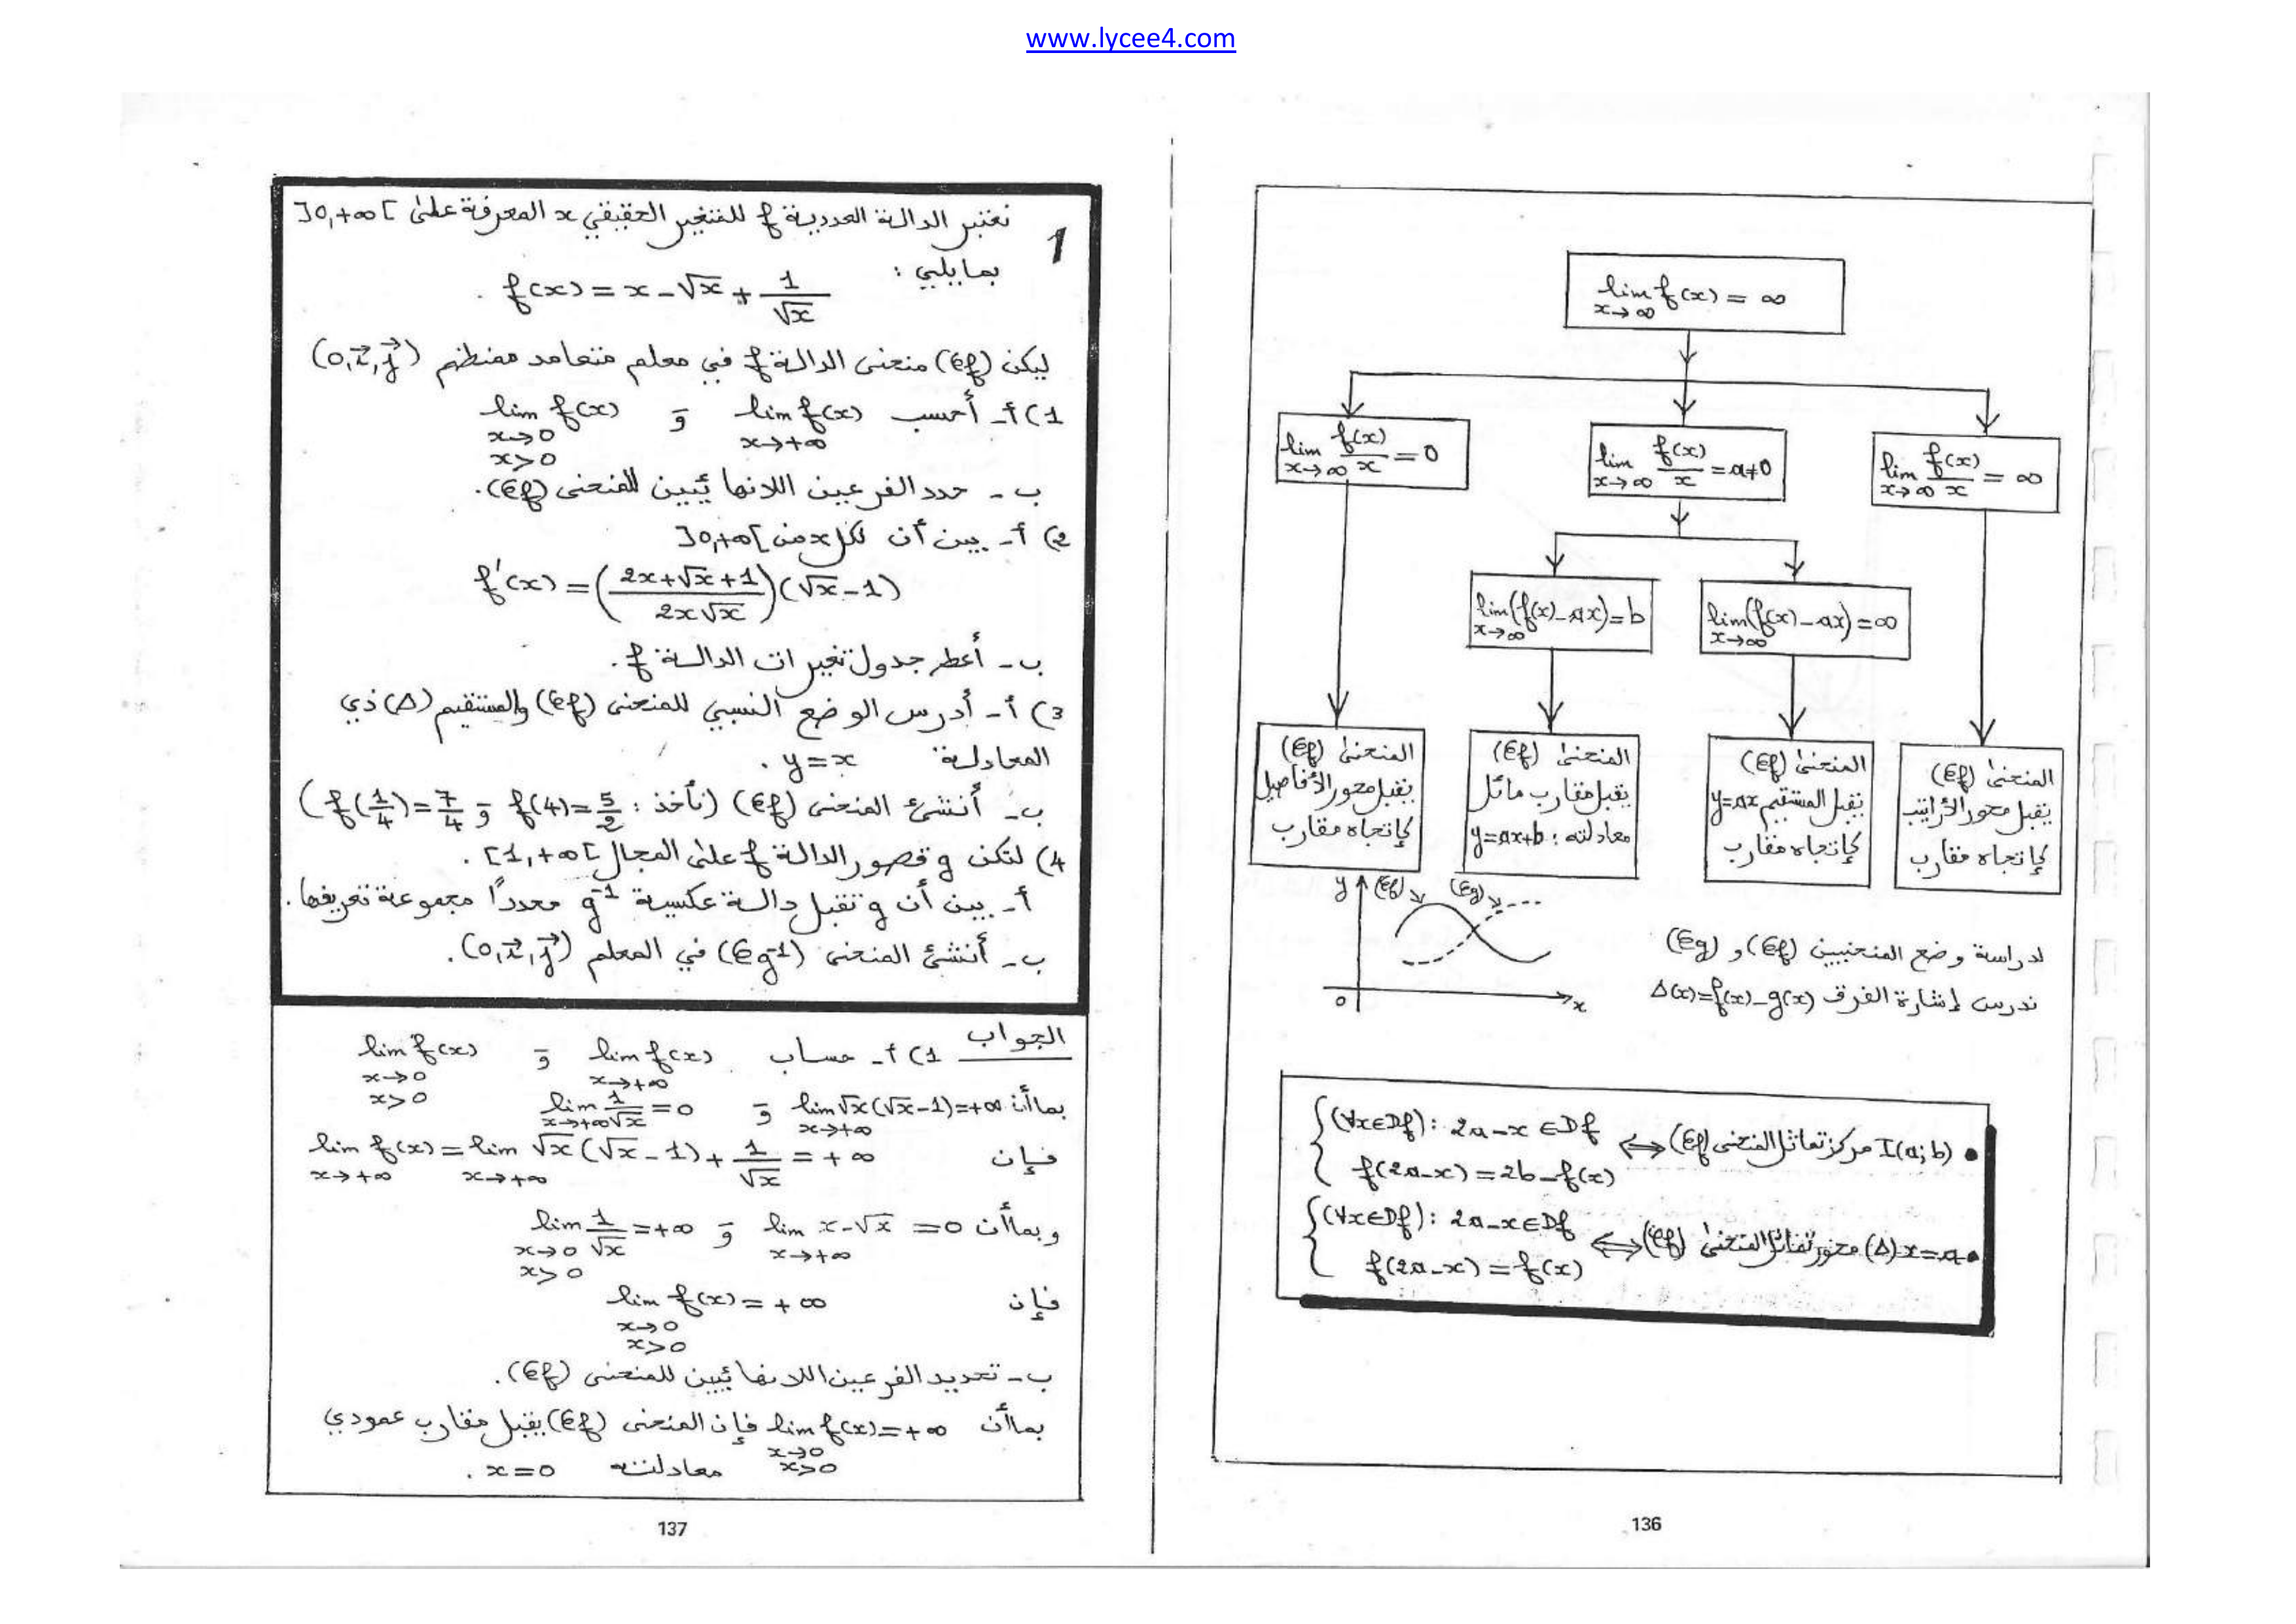 www.lycee4.com
lim f(x) = ∞
x→∞
lim f(x)/x = ∞
x→∞
lim f(x)/x = a≠0
x→∞
lim f(x)/x = 0
x→∞
lim(f(x)-ax)=∞
x→∞
lim(f(x)-ax)=b
x→∞
المنحنى (Cf)
يقبل محور الأراتيب
كإتجاه مقارب
المنحنى (Cf)
يقبل المستقيم y=ax
كإتجاه مقارب
المنحنى (Cf)
يقبل مقارب مائل
معادلته : y=ax+b
المنحنى (Cf)
يقبل محور الأفاصيل
كإتجاه مقارب
y (Cf) (Cg)
o x
لدراسة وضع المنحنيين (Cf) و (Cg)
ندرس إشارة الفرق Δ(x)=f(x)-g(x)
• I(a;b) مركز تماثل المنحنى (Cf) ⇔ { (∀x∈Df): 2a-x ∈Df
f(2a-x)=2b-f(x)
• x=a (Δ) محور تماثل المنحنى (Cf) ⇔ { (∀x∈Df): 2a-x∈Df
f(2a-x)=f(x)
136
1
نعتبر الدالة العددية f للمتغير الحقيقي x المعرفة على ]0,+∞[
بمايلي :
f(x) = x - √x + 1/√x .
ليكن (Cf) منحنى الدالة f في معلم متعامد ممنظم (o,i⃗,j⃗)
1) أ- أحسب lim f(x) و lim f(x)
x→+∞ x→0
x>0
ب- حدد الفرعين اللانهائيين للمنحنى (Cf).
2) أ- بين أن لكل x من ]0,+∞[
f'(x) = ((2x+√x+1)/(2x√x))(√x-1)
ب- أعط جدول تغيرات الدالة f.
3) أ- أدرس الوضع النسبي للمنحنى (Cf) والمستقيم (Δ) ذي
المعادلة y=x .
ب- أنشئ المنحنى (Cf) (نأخذ : f(4)=5/2 و f(1/4)=7/4)
4) لتكن g قصور الدالة f على المجال [1,+∞[ .
أ- بين أن g تقبل دالة عكسية g⁻¹ محدداً مجموعة تعريفها.
ب- أنشئ المنحنى (Cg⁻¹) في المعلم (o,i⃗,j⃗).
الجواب
1) أ- حساب lim f(x) و lim f(x)
x→+∞ x→0
x>0
بماأن lim √x(√x-1)=+∞ و lim 1/√x =0
x→+∞ x→+∞
فإن lim f(x) = lim √x(√x-1)+ 1/√x = +∞
x→+∞ x→+∞
وبماأن lim x-√x =0 و lim 1/√x =+∞
x→+∞ x→0
x>0
فإن lim f(x)= +∞
x→0
x>0
ب- تحديد الفرعين اللانهائيين للمنحنى (Cf).
بماأن lim f(x)=+∞ فإن المنحنى (Cf) يقبل مقارب عمودي
x→0
x>0
معادلته x=0 .
137